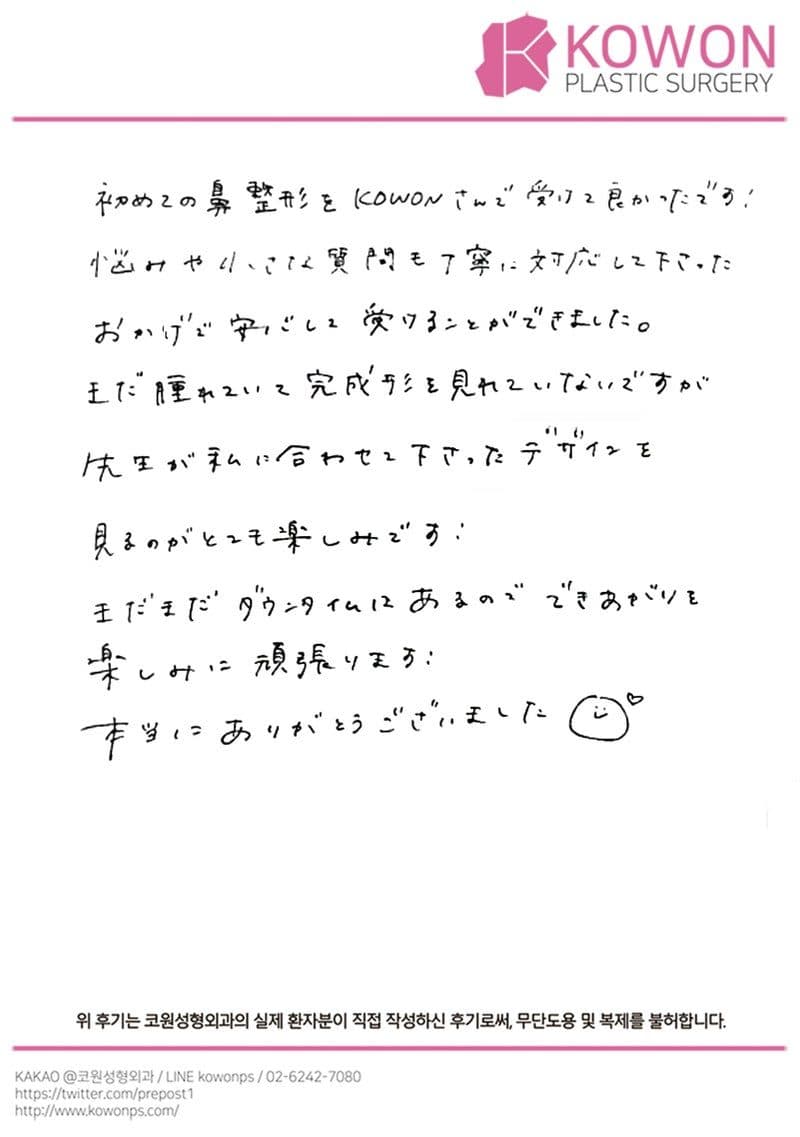 KOWON
PLASTIC SURGERY
初めての鼻整形をKOWONさんで受けて良かったです!
悩みや小さな質問も丁寧に対応して下さった
おかげで安心して受けることができました。
まだ腫れていて完成形を見れていないですが
先生が私に合わせて下さったデザインを
見るのがとても楽しみです!
まだまだダウンタイムはあるのでできあがりを
楽しみに頑張ります!
本当にありがとうございました
위 후기는 코원성형외과의 실제 환자분이 직접 작성하신 후기로써, 무단도용 및 복제를 불허합니다.
KAKAO @코원성형외과 / LINE kowonps / 02-6242-7080
https://twitter.com/prepost1
http://www.kowonps.com/